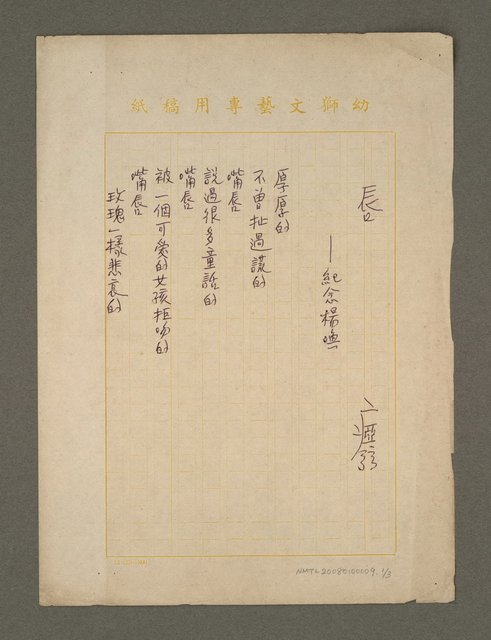 幼獅文藝專用稿紙
唇
—紀念楊喚
瘂弦
厚厚的
不曾扯過謊的
嘴唇
說過很多童話的
嘴唇
被一個可愛的女孩拒吻的
嘴唇
玫瑰一樣悲哀的
NMTL20080100009. 1/3